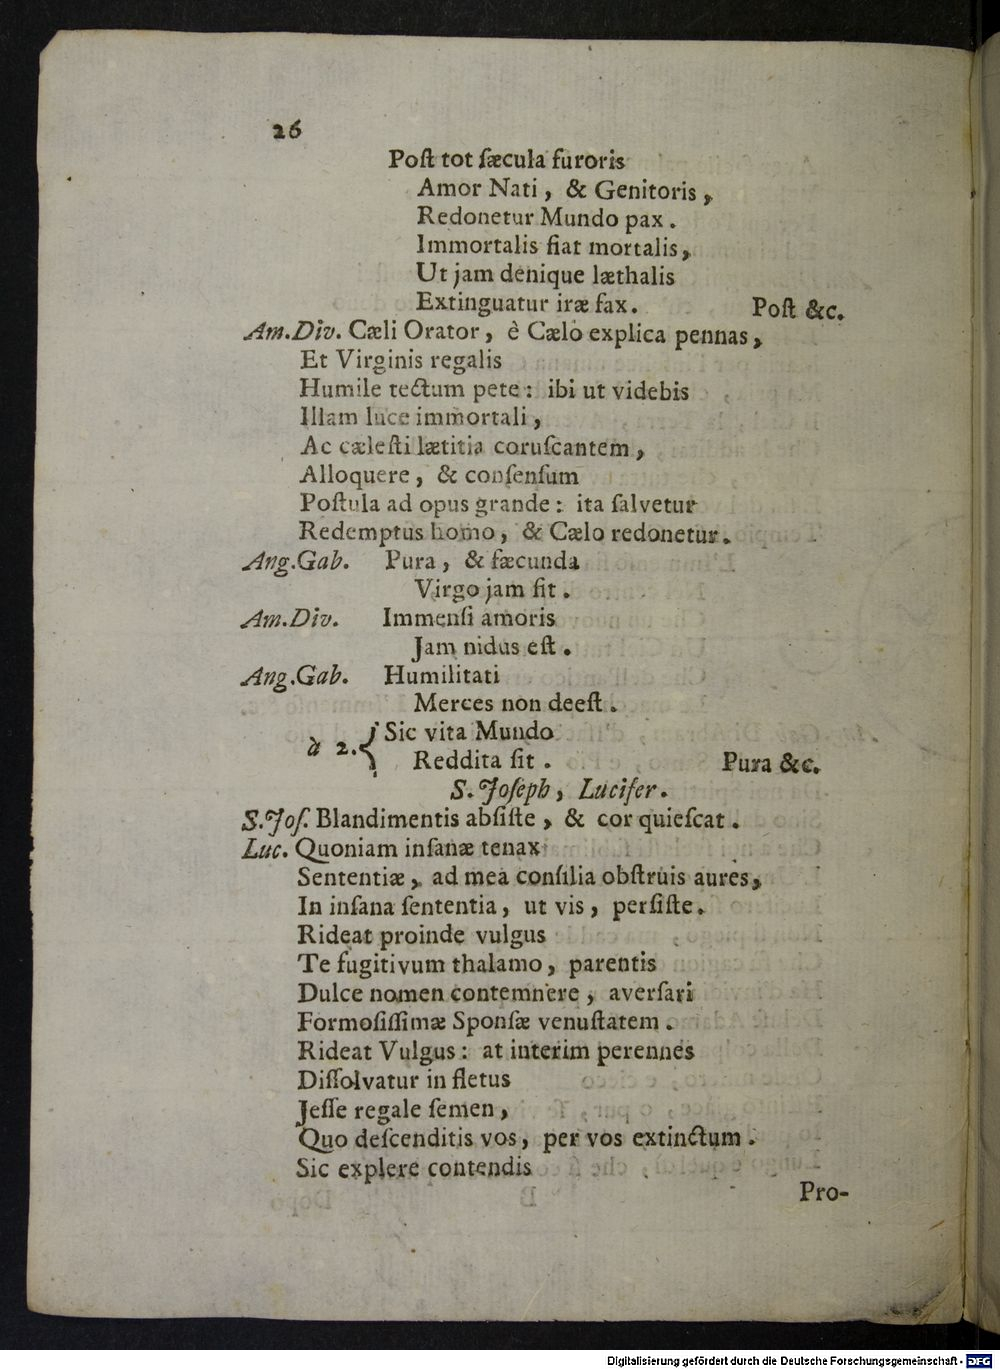 26
Poſt tot ſæcula furoris
Amor Nati, & Genitoris,
Redonetur Mundo pax.
Immortalis fiat mortalis,
Ut jam denique læthalis
Extinguatur iræ fax. Poſt &c.
Am.Div. Cæli Orator, è Cælo explica pennas,
Et Virginis regalis
Humile tectum pete: ibi ut videbis
Illam luce immortali,
Ac cæleſti lætitia coruſcantem,
Alloquere, & conſenſum
Poſtula ad opus grande: ita ſalvetur
Redemptus homo, & Cælo redonetur.
Ang.Gab. Pura, & fæcunda
Virgo jam ſit.
Am.Div. Immenſi amoris
Jam nidus eſt.
Ang.Gab. Humilitati
Merces non deeſt.
à 2. { Sic vita Mundo
Reddita ſit. Pura &c.
S. Joſeph, Lucifer.
S.Joſ. Blandimentis abſiſte, & cor quieſcat.
Luc. Quoniam inſanæ tenax
Sententiæ, ad mea conſilia obſtruis aures,
In inſana ſententia, ut vis, perſiſte.
Rideat proinde vulgus
Te fugitivum thalamo, parentis
Dulce nomen contemnere, averſari
Formoſiſſimæ Sponſæ venuſtatem.
Rideat Vulgus: at interim perennes
Diſſolvatur in fletus
Jeſſe regale ſemen,
Quo deſcenditis vos, per vos extinctum.
Sic explere contendis
Pro-
Digitalisierung gefördert durch die Deutsche Forschungsgemeinschaft - DFG